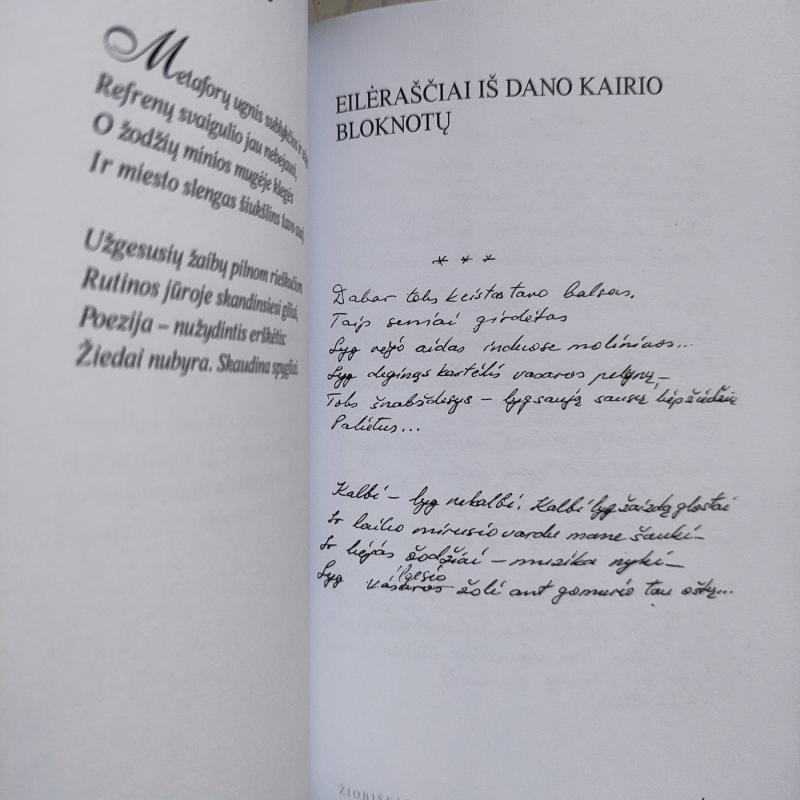 Metaforų ugnis sublyksčios ir
Refrenų svaigulio jau nebejausi,
O žodžių minios mugėje klegės
Ir miesto slengas šiukšlins tavo
Užgesusių žaibų pilnom rieškučiom
Rutinos jūroje skandinsiesi giliai,
Poezija – nužydintis erškėtis:
Žiedai nubyra. Skaudina spygliai.
EILĖRAŠČIAI IŠ DANO KAIRIO
BLOKNOTŲ
* * *
Dabar toks keistas tavo balsas.
Taip seniai girdėtas
Lyg vėjo aidas induose moliniuos...
Lyg deginąs kartėlis vasaros pelynų –
Toks šnabždesys – lyg saują sausų liepžiedžių
Palietus...
Kalbi – lyg nekalbi. Kalbi lyg žaizdą glostai
Ir laiko mirusio vardu mane šauki –
Ir liejas žodžiai – muzika nyki –
Ilgesio
Lyg vasaros žolė ant gomurio tau